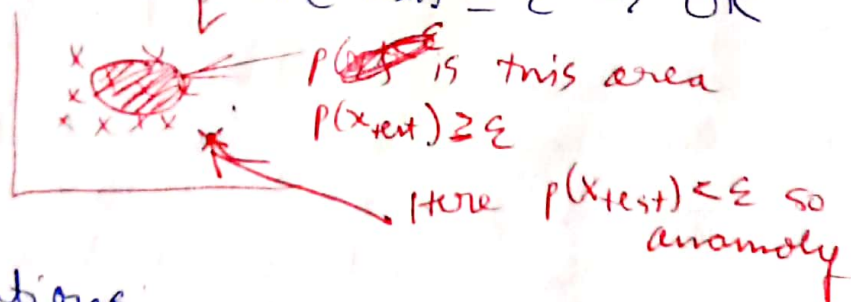 OK
p is this area
p(x_test) ≥ ε
Here p(x_test) < ε so
anamoly
tions